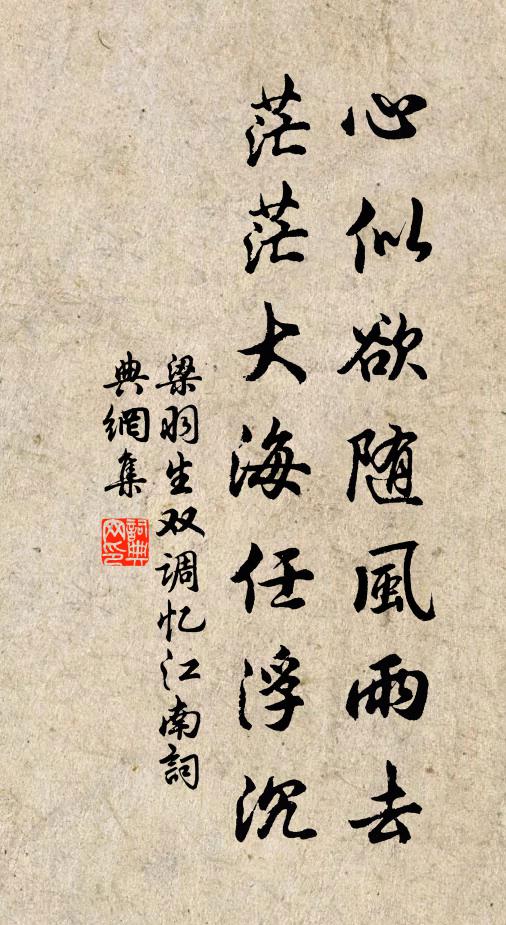 心似欲随風雨去
茫茫大海任浮沉
梁羽生双调忆江南詞
典網集
詞典网印